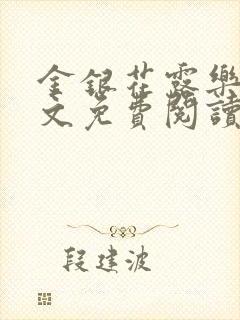 金銀花露樂
文免費閱讀
段建波